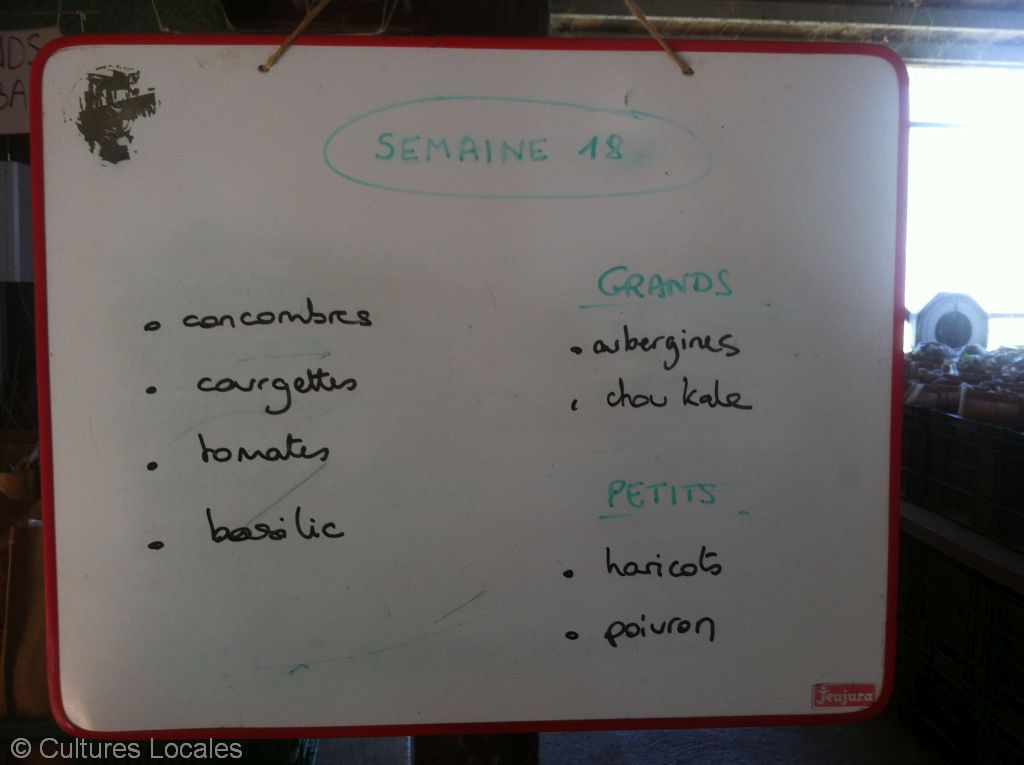 NDS
BA
SEMAINE 18
• concombres
• courgettes
• tomates
• basilic
GRANDS
• aubergines
• chou kale
PETITS
• haricots
• poivron
Jeujura
© Cultures Locales